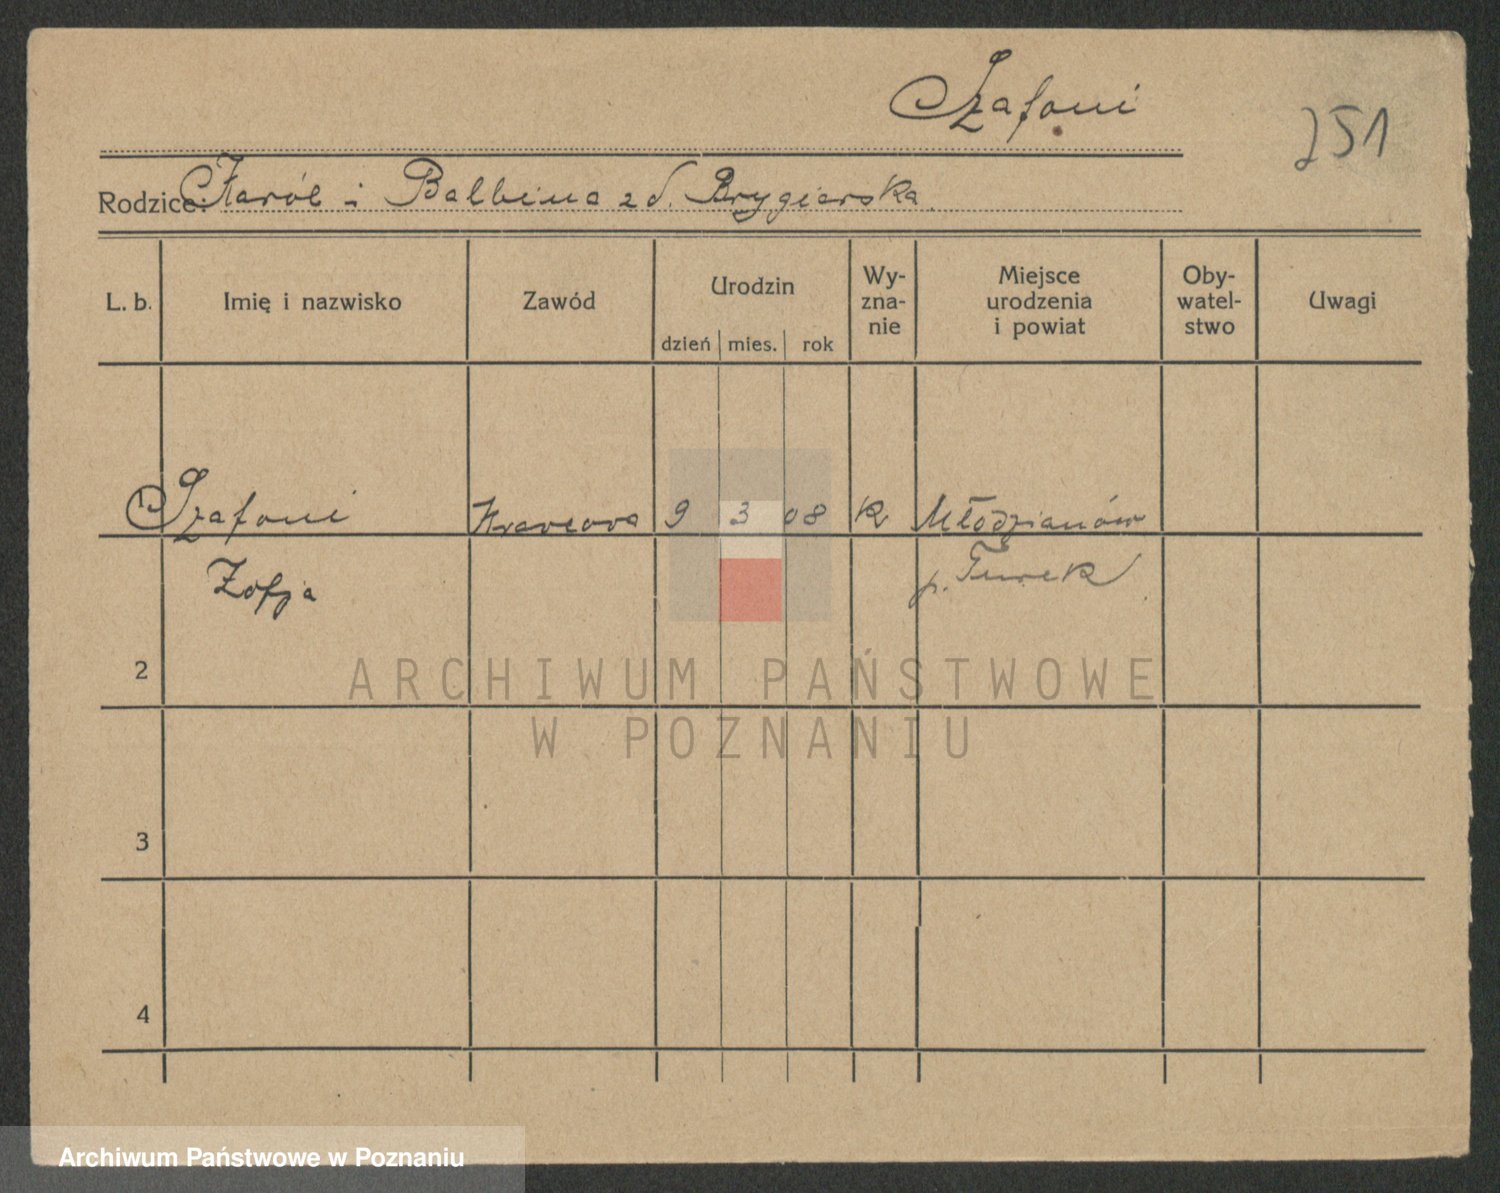 Szafoni
251
Rodzice: Karól i Balbina zd. Brygierska
L. b. Imię i nazwisko Zawód Urodzin dzień mies. rok Wy-zna-nie Miejsce urodzenia i powiat Oby-watel-stwo Uwagi
1 Szafoni Krawcowa 9 3 08 Rk Młodzianów
Zofja p. Turek
2
3
4
ARCHIWUM PAŃSTWOWE
W POZNANIU
Archiwum Państwowe w Poznaniu